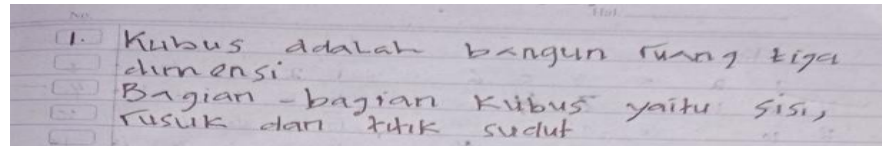 1. Kubus adalah bangun ruang tiga
dimensi
Bagian-bagian Kubus yaitu sisi,
rusuk dan titik sudut